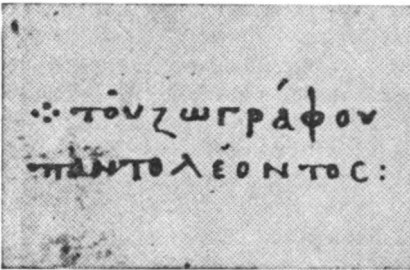 ⁘ τοῦ ζωγράφου
παντολέοντος: